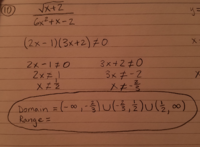 10)
√x+2
6x²+x-2
(2x-1)(3x+2)≠0
2x-1≠0 3x+2≠0
2x≠1 3x≠-2
x≠1/2 x≠-2/3
Domain = (-∞, -2/3) ∪ (-2/3, 1/2) ∪ (1/2, ∞)
Range =